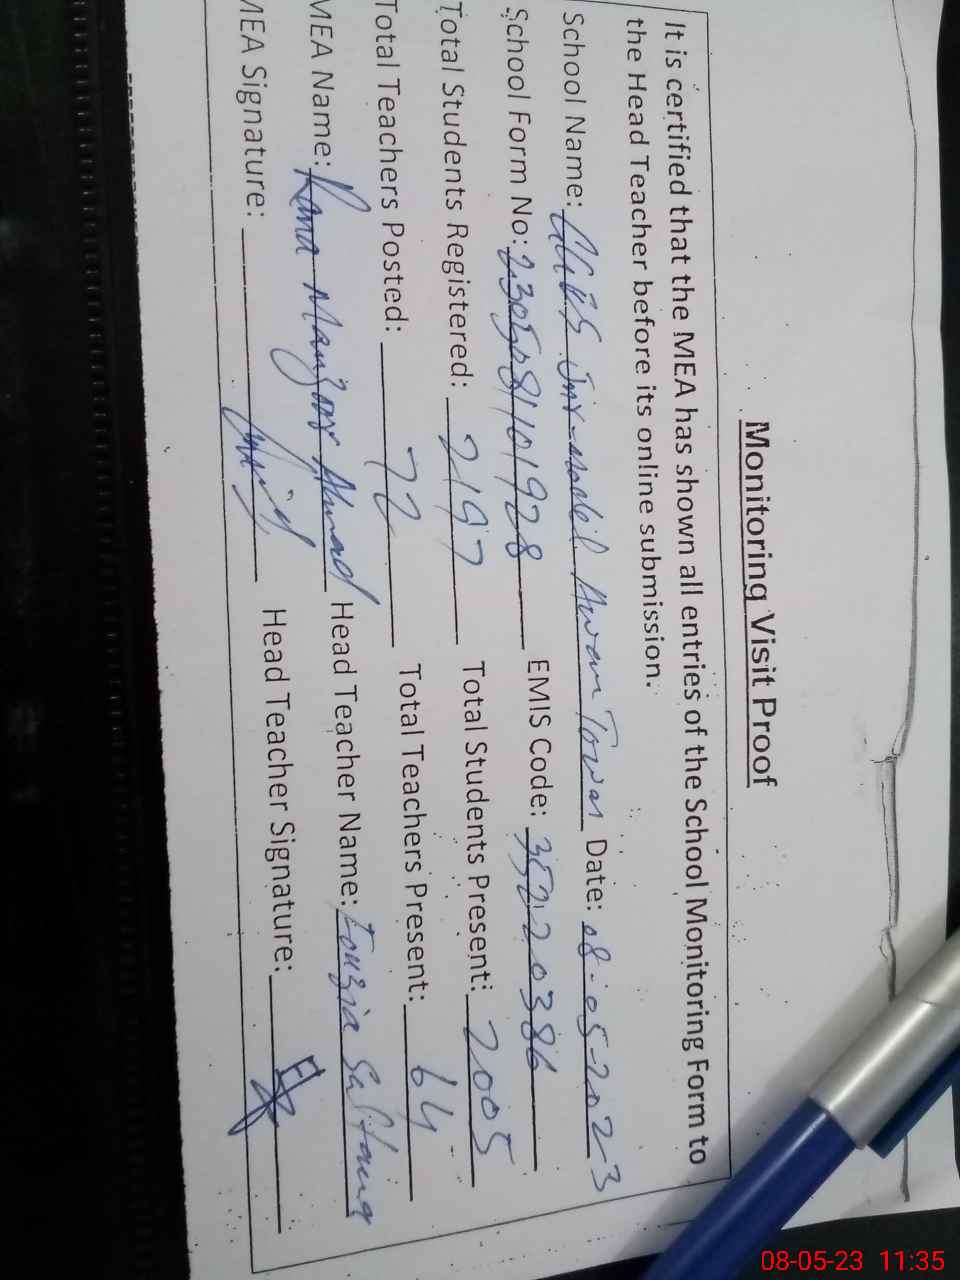 Monitoring Visit Proof
It is certified that the MEA has shown all entries of the School Monitoring Form to
the Head Teacher before its online submission.
School Name: Awan Town Date: 08-05-2023
School Form No: 2305081101928 EMIS Code: 35220386
Total Students Registered: 2197 Total Students Present: 2005
Total Teachers Posted: 72 Total Teachers Present: 64
MEA Name: Rana Manzoor Ahmad Head Teacher Name: Fouzia Saltana
MEA Signature: Head Teacher Signature:
08-05-23 11:35